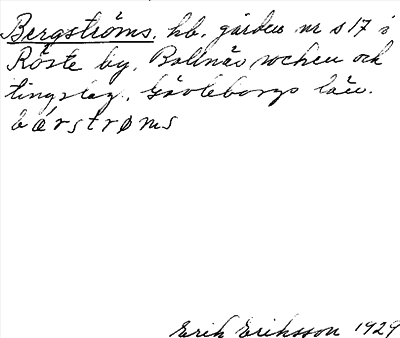 Bergströms, hb. gården nr s 17 i
Röste by, Bollnäs socken och
tingslag, Gävleborgs län.
bárstrøms
Erik Eriksson 1929